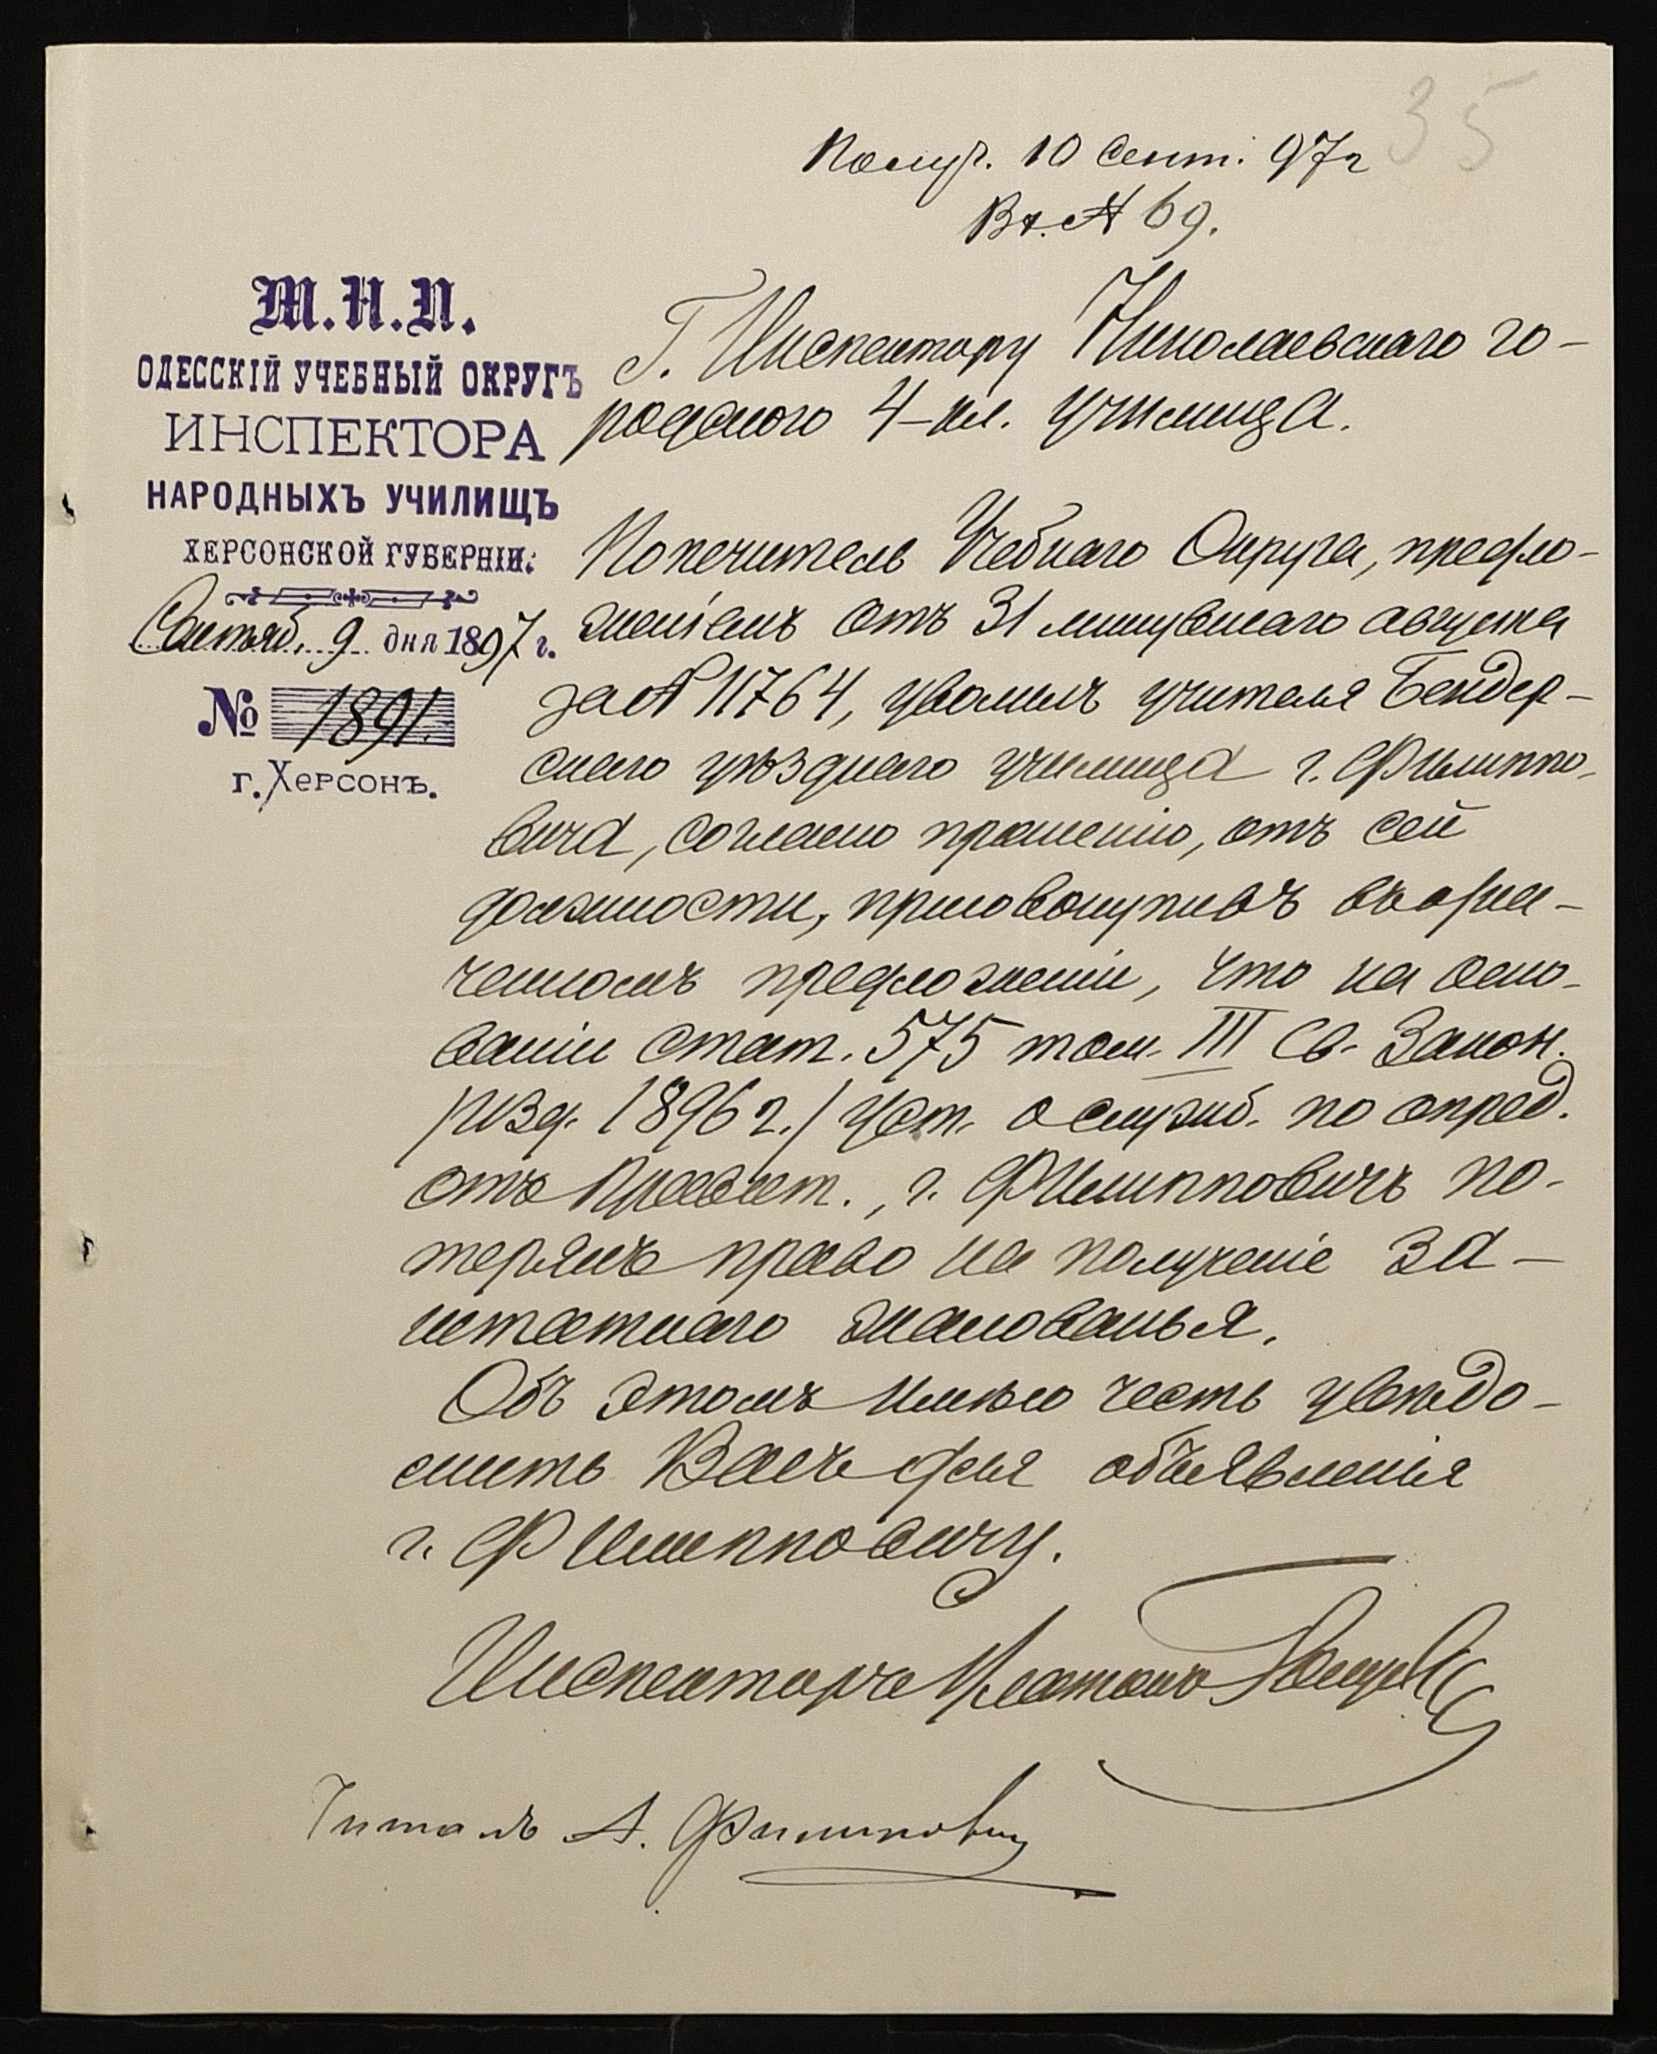 35
Получ. 10 Сент. 97 г
Вх. № 69.
М.Н.П.
ОДЕССКІЙ УЧЕБНЫЙ ОКРУГЪ
ИНСПЕКТОРА
НАРОДНЫХЪ УЧИЛИЩЪ
ХЕРСОНСКОЙ ГУБЕРНІИ.
Сентяб. 9 дня 1897 г.
№ 1891.
г. Херсонъ.
Г. Инспектору Николаевскаго го-
родского 4-кл. училища.
Попечитель Учебнаго Округа, предло-
женіемъ отъ 31 минувшаго августа
за № 11764, уволилъ учителя Бендер-
скаго уѣзднаго училища г. Филиппо-
вича, согласно прошенію, отъ сей
должности, присовокупивъ въ озна-
ченномъ предложеніи, что на осно-
ваніи стат. 575 том. III Св. Закон.
/изд. 1896 г./ уст. о служб. по опред.
отъ Правит., г. Филипповичъ по-
терялъ право на полученіе за-
штатнаго жалованья.
Объ этомъ имѣю честь увѣдо-
мить Васъ для объявленія
г. Филипповичу.
Инспекторъ Платонъ
Читалъ А. Филиппович